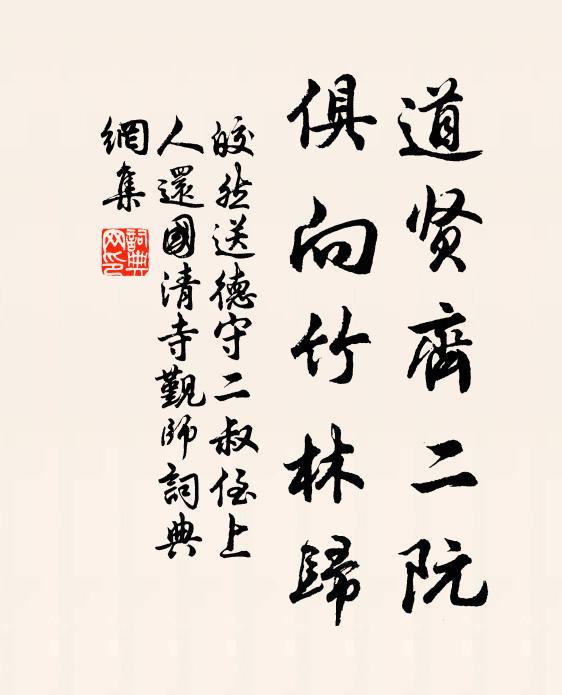 道贤齊二阮
俱向竹林歸
皎然送德守二叔侄上
人還國清寺觐師詞典
網集
詞典
网印